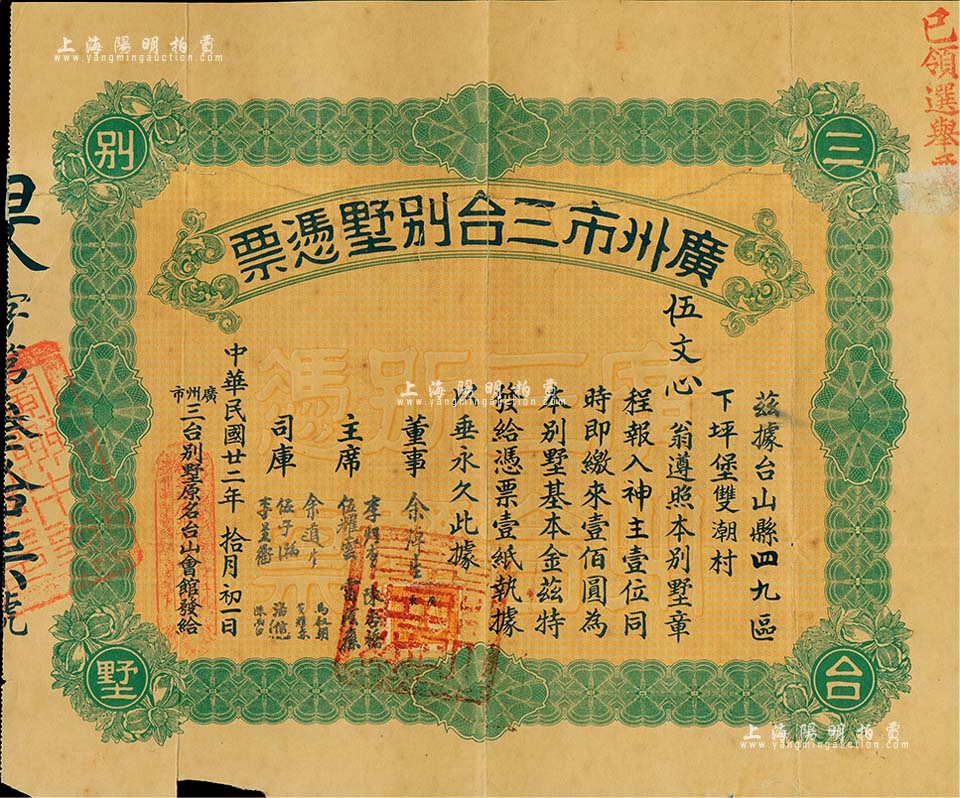 上海陽明拍賣
www.yangmingauction.com
已領選舉
三
台
別
墅
廣州市三台別墅憑票
茲據台山縣四九區
下坪堡雙潮村
伍文心翁遵照本別墅章
程報入神主壹位同
時即繳來壹佰圓為
本別墅基本金茲特
發給憑票壹紙執據
以垂永久此據
董事
余
主席
李
陳
伍耀雲
雷
司庫
余道生
伍于
李
中華民國廿二年拾月初一日
廣州市三台別墅原名台山會館發給
字第
號
上海陽明拍賣
www.yangmingauction.com
上海陽明拍賣
www.yangmingauction.com